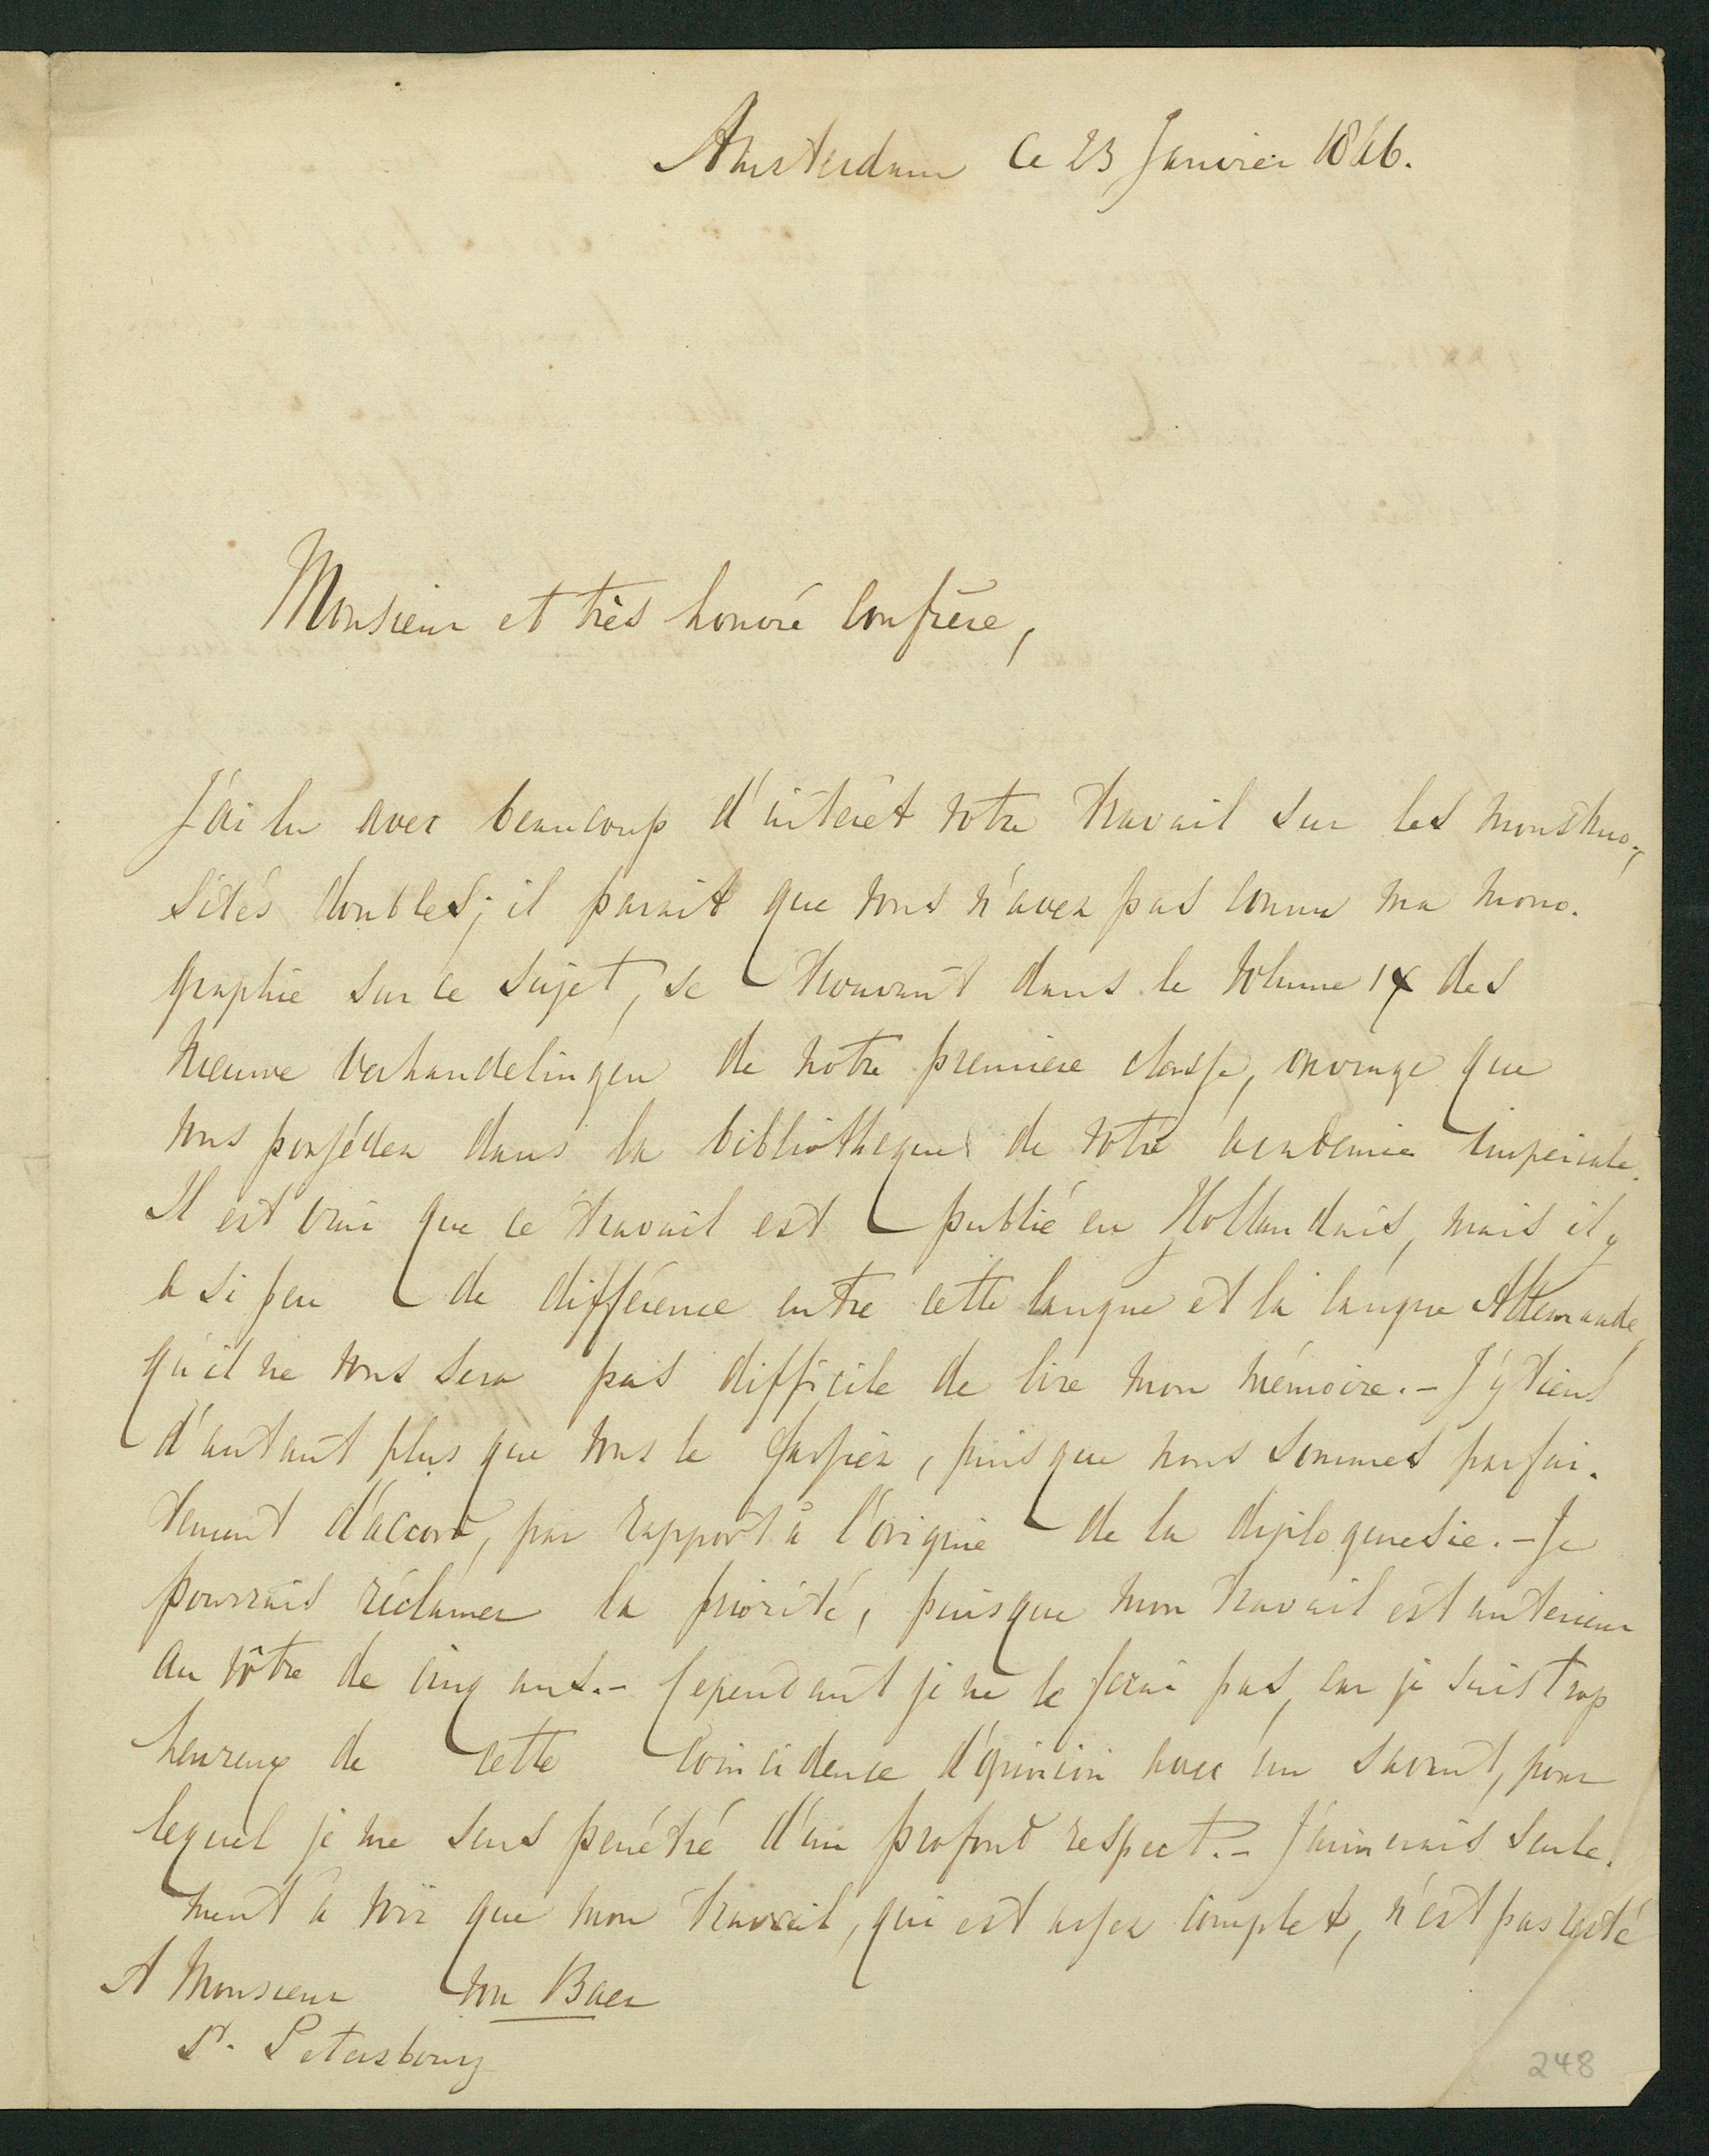 Amsterdam ce 23 Janvier 1846.
Monsieur et très honoré Confrère,
J'ai lu avec beaucoup d'intérêt votre travail sur les monstruo-
sités doubles; il parait que vous n'avez pas connu ma mono-
graphie sur ce sujet, se trouvant dans le volume IX des
Nieuwe Verhandelingen de notre première classe, ouvrage que
vous possédez dans la bibliotheque de votre academie Imperiale.
Il est vrai que ce travail est publié en Hollandais, mais il y
a si peu de différence entre cette langue et la langue Allemande,
qu'il ne vous sera pas difficile de lire mon mémoire. - J'y tiens
d'autant plus que vous le fassiez, puisque nous sommes parfai-
tement d'accord, par rapport à l'origine de la diplogenesie. - Je
pourrais réclamer la priorité, puisque mon travail est anterieur
au vôtre de cinq ans. - Cependant je ne le ferai pas, car je suis trop
heureux de cette coincidence d'opinion avec un savant, pour
lequel je me sens penétré d'un profond respect. - J'aimerais seule-
ment à voir que mon travail, qui est assez complet, n'est pas resté
A Monsieur von Baer
St. Petersbourg
248